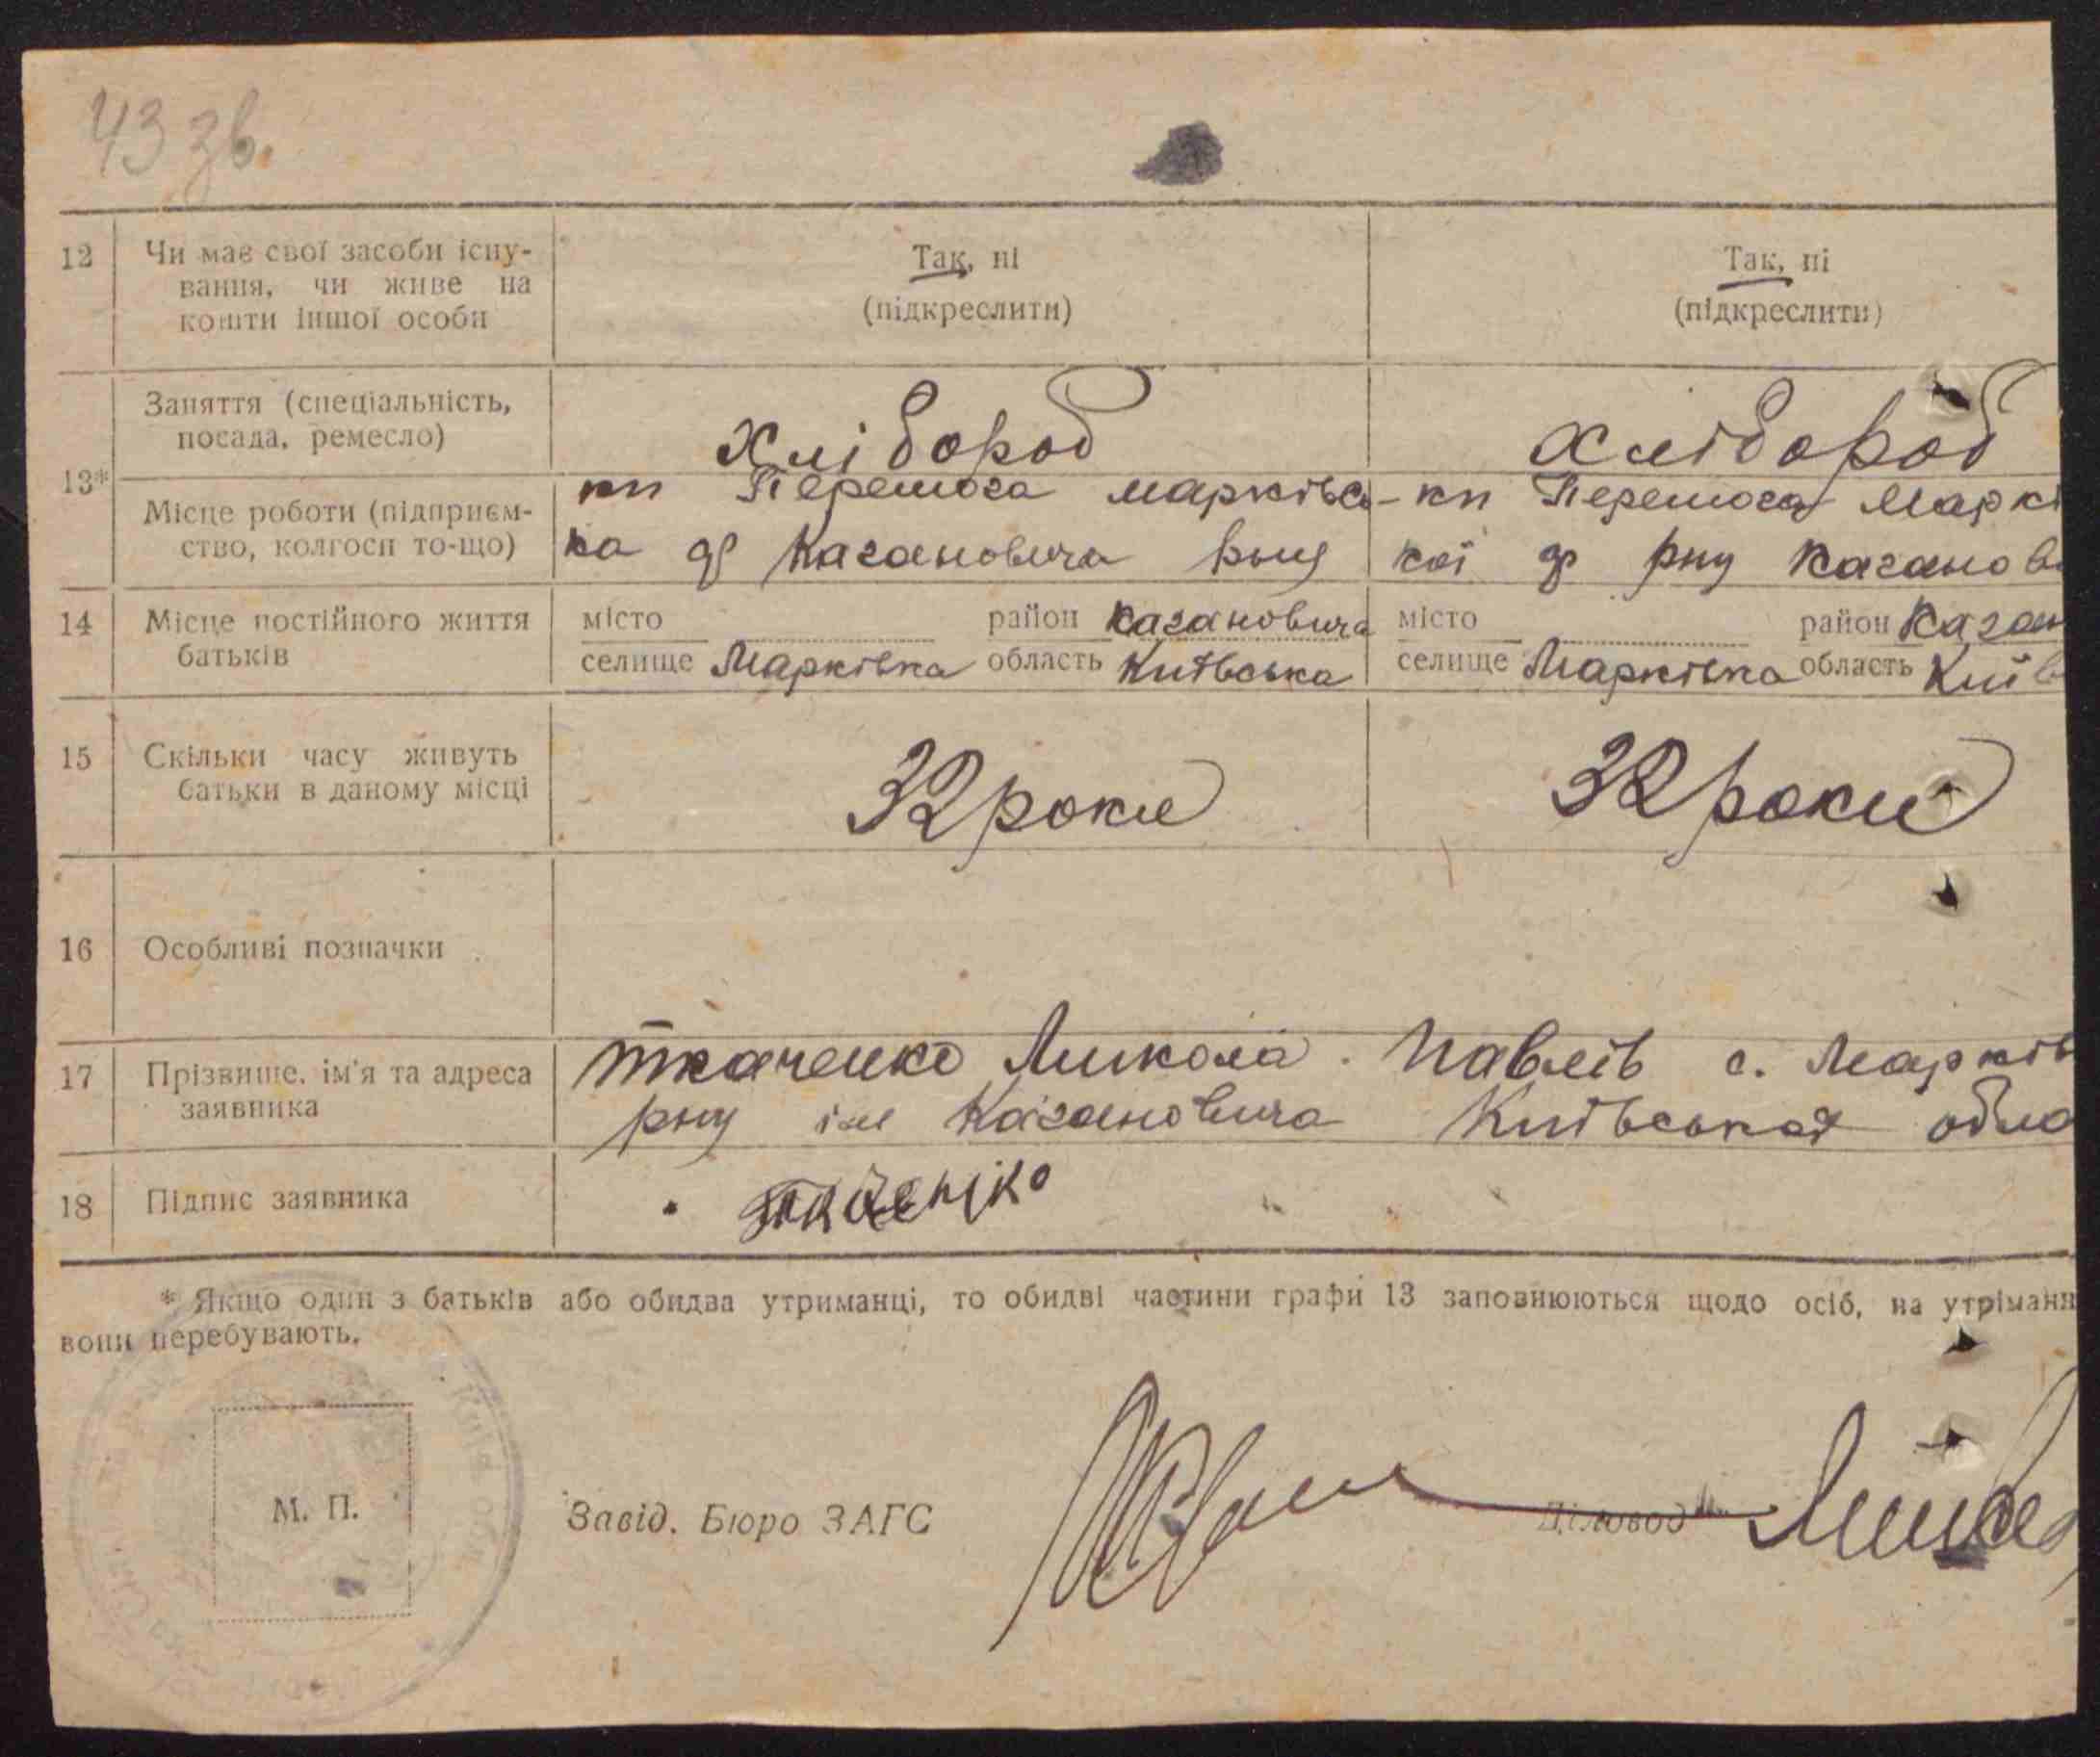 43 зв.
12 Чи має свої засоби існу-
вання, чи живе на
кошти іншої особи
Так, ні
(підкреслити)
Так, ні
(підкреслити)
13*
Заняття (спеціальність,
посада, ремесло)
Хлібороб
Хлібороб
Місце роботи (підприєм-
ство, колгосп то-що)
кп Перемога марківсь-
ка Кагановича рну
кп Перемога Маркі
кої рну Каганов
14 Місце постійного життя
батьків
місто район Кагановича
селище Марківка область Київська
місто район Каган
селище Марківка область Київ
15 Скільки часу живуть
батьки в даному місці
32 роки
32 роки
16 Особливі позначки
17 Прізвище, ім'я та адреса
заявника
Ткаченко Микола Павлів с. Марків
рну ім Кагановича Київська обла
18 Підпис заявника
Ткаченко
* Якщо один з батьків або обидва утриманці, то обидві частини графи 13 заповнюються щодо осіб, на утріманн
вони перебувають.
М. П.
Завід. Бюро ЗАГС
Діловод